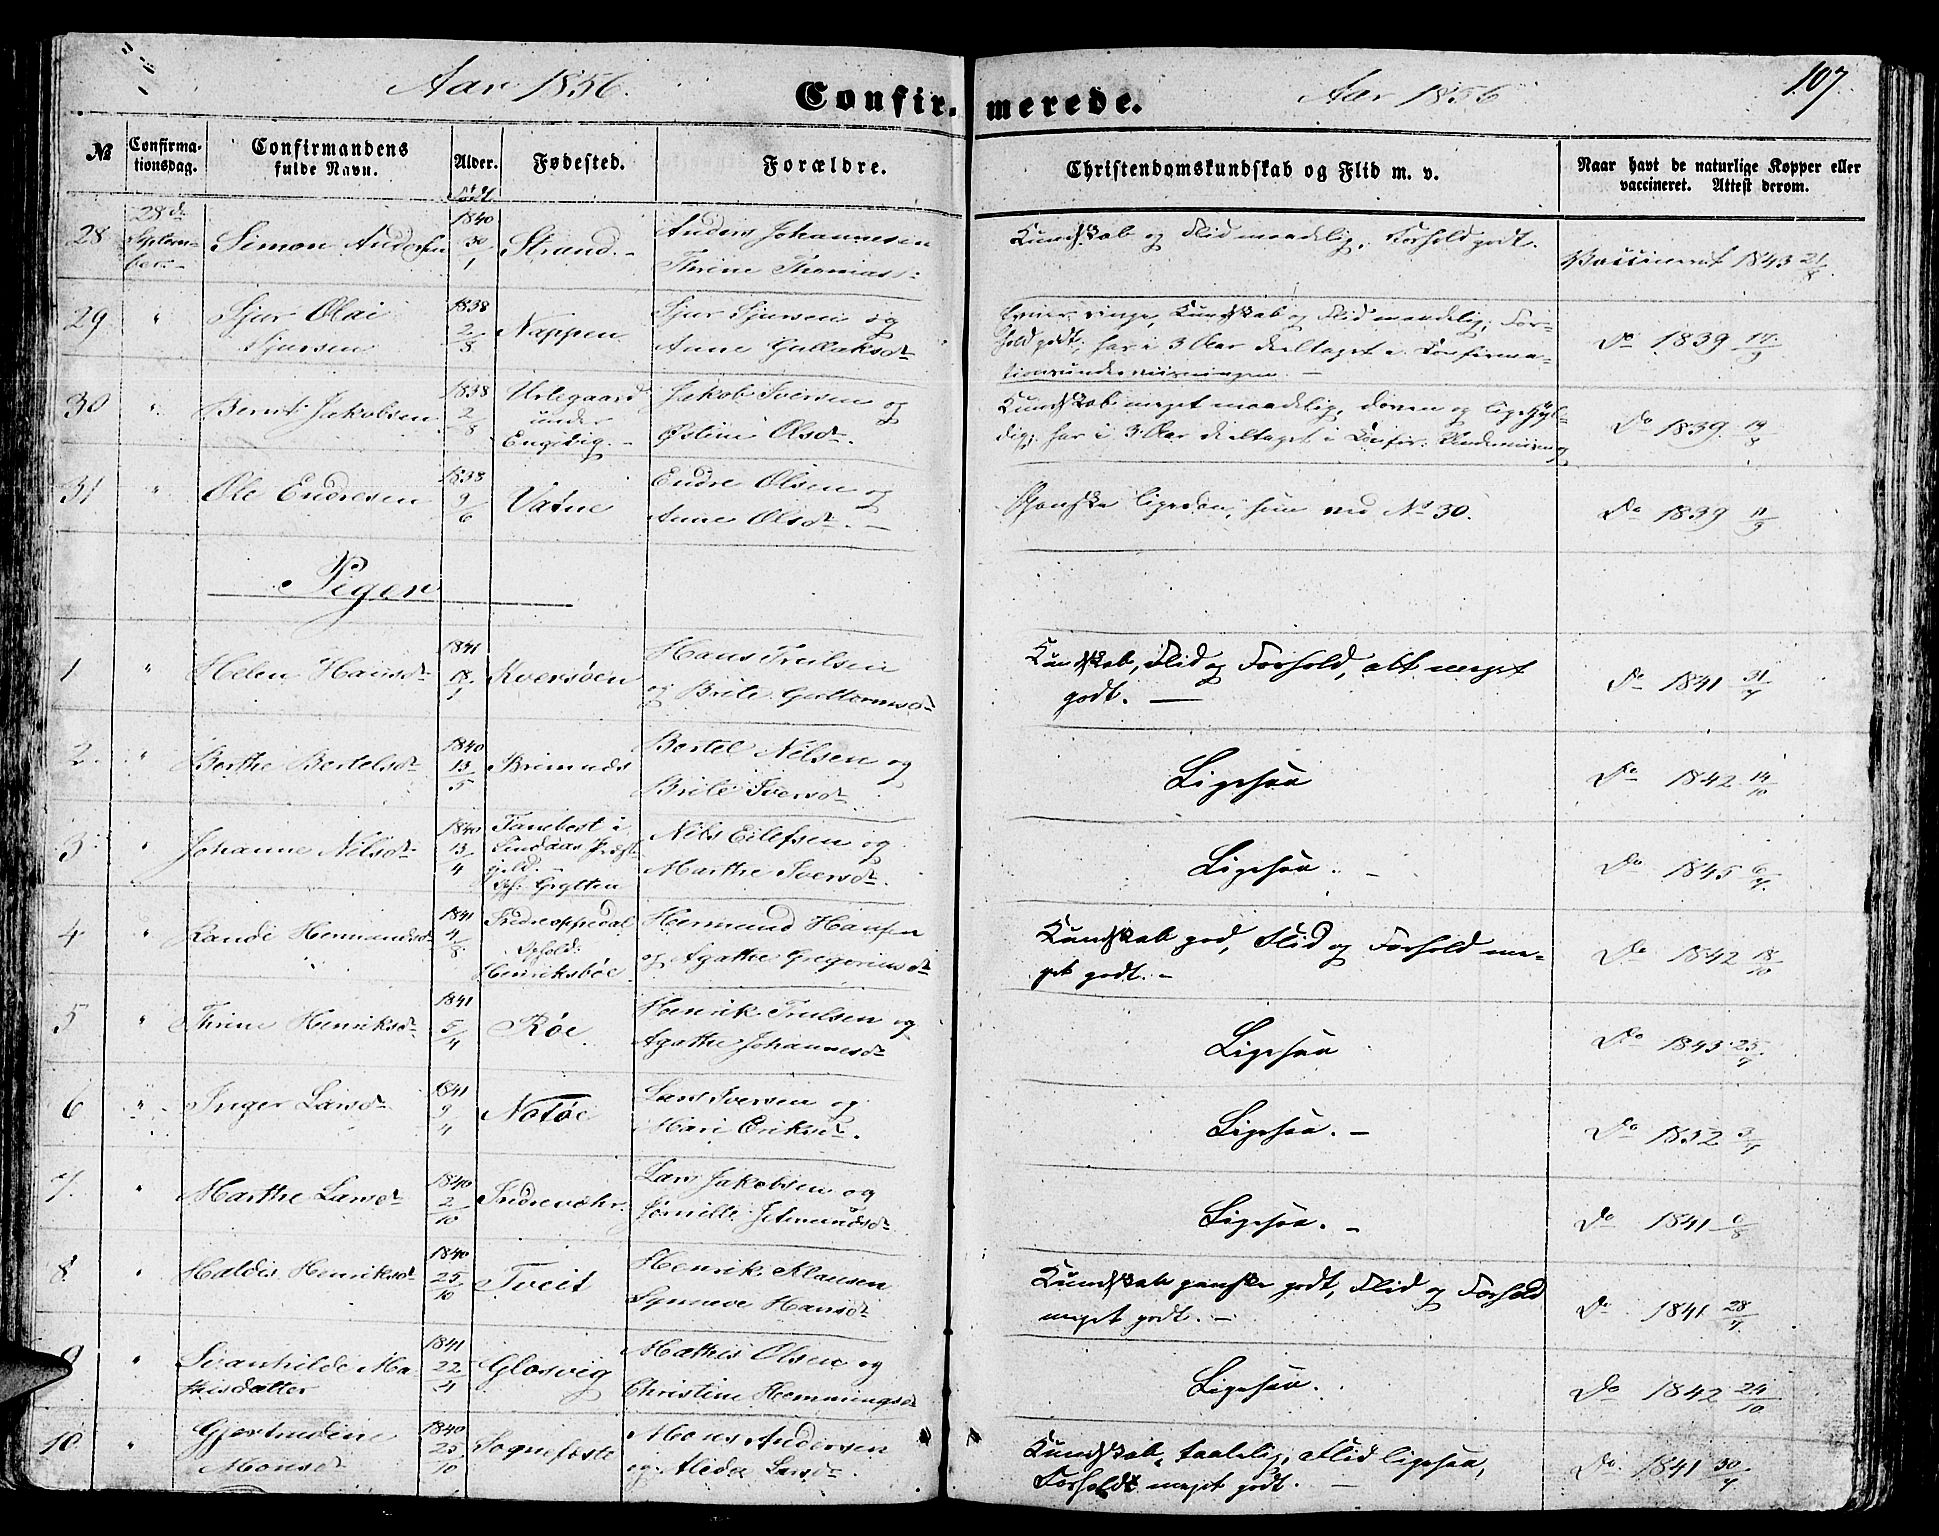 Aar 1856.
Confirmerede.
Aar 1856
107.
№ Confirmationsdag. Confirmandens fulde Navn. Alder. Fødested. Forældre. Christendomskundskab og Flid m. v. Naar havt de naturlige Kopper eller vaccineret. Attest derom.
født
28 28de September Simon Andersen 1840 30/1 Strand. Anders Johannesen Thrine Thomasd: Kundskab og Flid maadelig, Forhold godt. Vaccineret 1843 21/8.
29 " Sjur Olai Sjursen 1838 2/8 Nappen Sjur Sjursen og Anne Gullaksdr Evner ringe, Kundskab og Flid maadelig, Forhold godt; har i 3 Aar deeltaget i Confirmationsundervisningen. Do 1839 17/9
30 " Bernt Jakobsen 1838 2/8 Urlegaard under Engevig. Jakob Iversen og Østine Olsdr. Kundskab meget maadelig, doven og ligegyldig; har i 3 Aar deeltaget i Confir. Undervisning Do 1839 19/9
31 " Ole Endresen 1838 9/6 Vatne Endre Olsen og Anne Olsdr. Ganske ligedan, som ved No 30. Do 1839 11/9
Piger
1 " Helen Hansdr 1841 18/1 Kversøen Hans Trulsen og Brite Guttormsdr Kundskab, Flid og Forhold, alt meget godt. Do 1841 31/7
2. " Berthe Bertelsdr 1840 13/5 Brimnæs Bertel Nilsen og Brite Iversdr. Ligesaa Do 1842 14/10
3. " Johanne Nilsdr 1840 13/4 Tanebest i Lindaas Præstegjeld. Oph. Grytten Nils Eilefsen og Marthe Iversdr. Ligesaa. Do 1845 6/7.
4 " Randi Hermundsdr 1841 4/8 Indreoppedal Ophold: Henriksbøe Hermund Hansen og Agathe Gregoriusdr Kundskab god, Flid og Forhold meget godt. Do 1842 18/10
5 " Thrine Henriksdr 1841 5/4 Røe. Henrik Trulsen og Agathe Johannesdr Ligesaa Do 1843 25/7.
6 " Inger Larsdr 1841 9/4 Notøe Lars Iversen og Mari Eriksdr. Ligesaa. Do 1852 3/7
7. " Marthe Larsdr 1840 2/10 Indrevær. Lars Jakobsen og Jetmundsdr Ligesaa. Do 1841 6/8
8 " Haldis Henriksdr 1840 25/10 Tveit Henrik Klausen Synneve Hansdr Kundskab ganske godt, Flid og Forhold meget godt. Do 1841 28/7
9 " Svanhilde Mathisdatter 1841 22/4 Glosvig Mathis Olsen og Christine Hemmingsdr Ligesaa. Do 1842 24/10
10 " Gjertrudine Monsdr 1840 25/10 Sognefæste Mons Andersen og Alida Larsdr. Kundskab taalelig, Flid ligesaa, Forholdt meget godt. Do. 1841 30/7